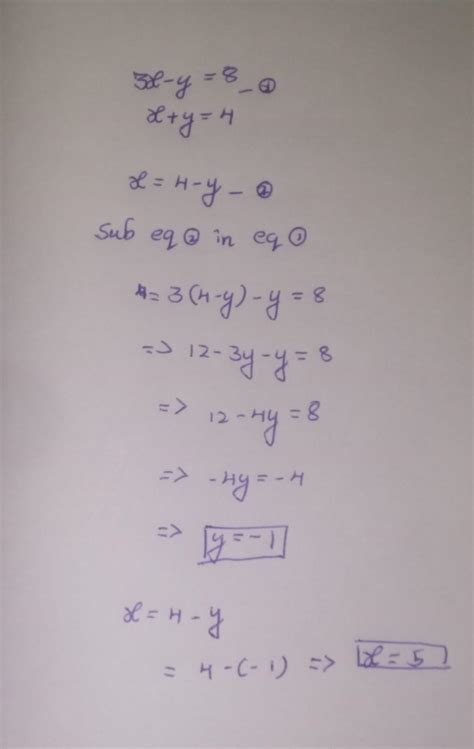 3x-y = 8 - ①
x+y = 4
x = 4-y - ②
Sub eq ② in eq ①
= 3(4-y)-y = 8
=> 12-3y-y = 8
=> 12-4y = 8
=> -4y = -4
=> y = -1
x = 4 - y
= 4-(-1) => x = 5